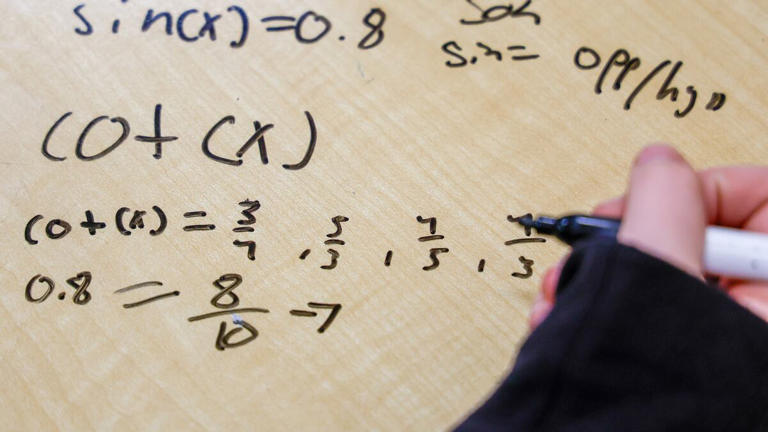 sin(x)=0.8
Soh
sin= opp/hyp
cot(x)
cot(x) = 3/4, 5/3, 4/5, 4/3
0.8 = 8/10 →